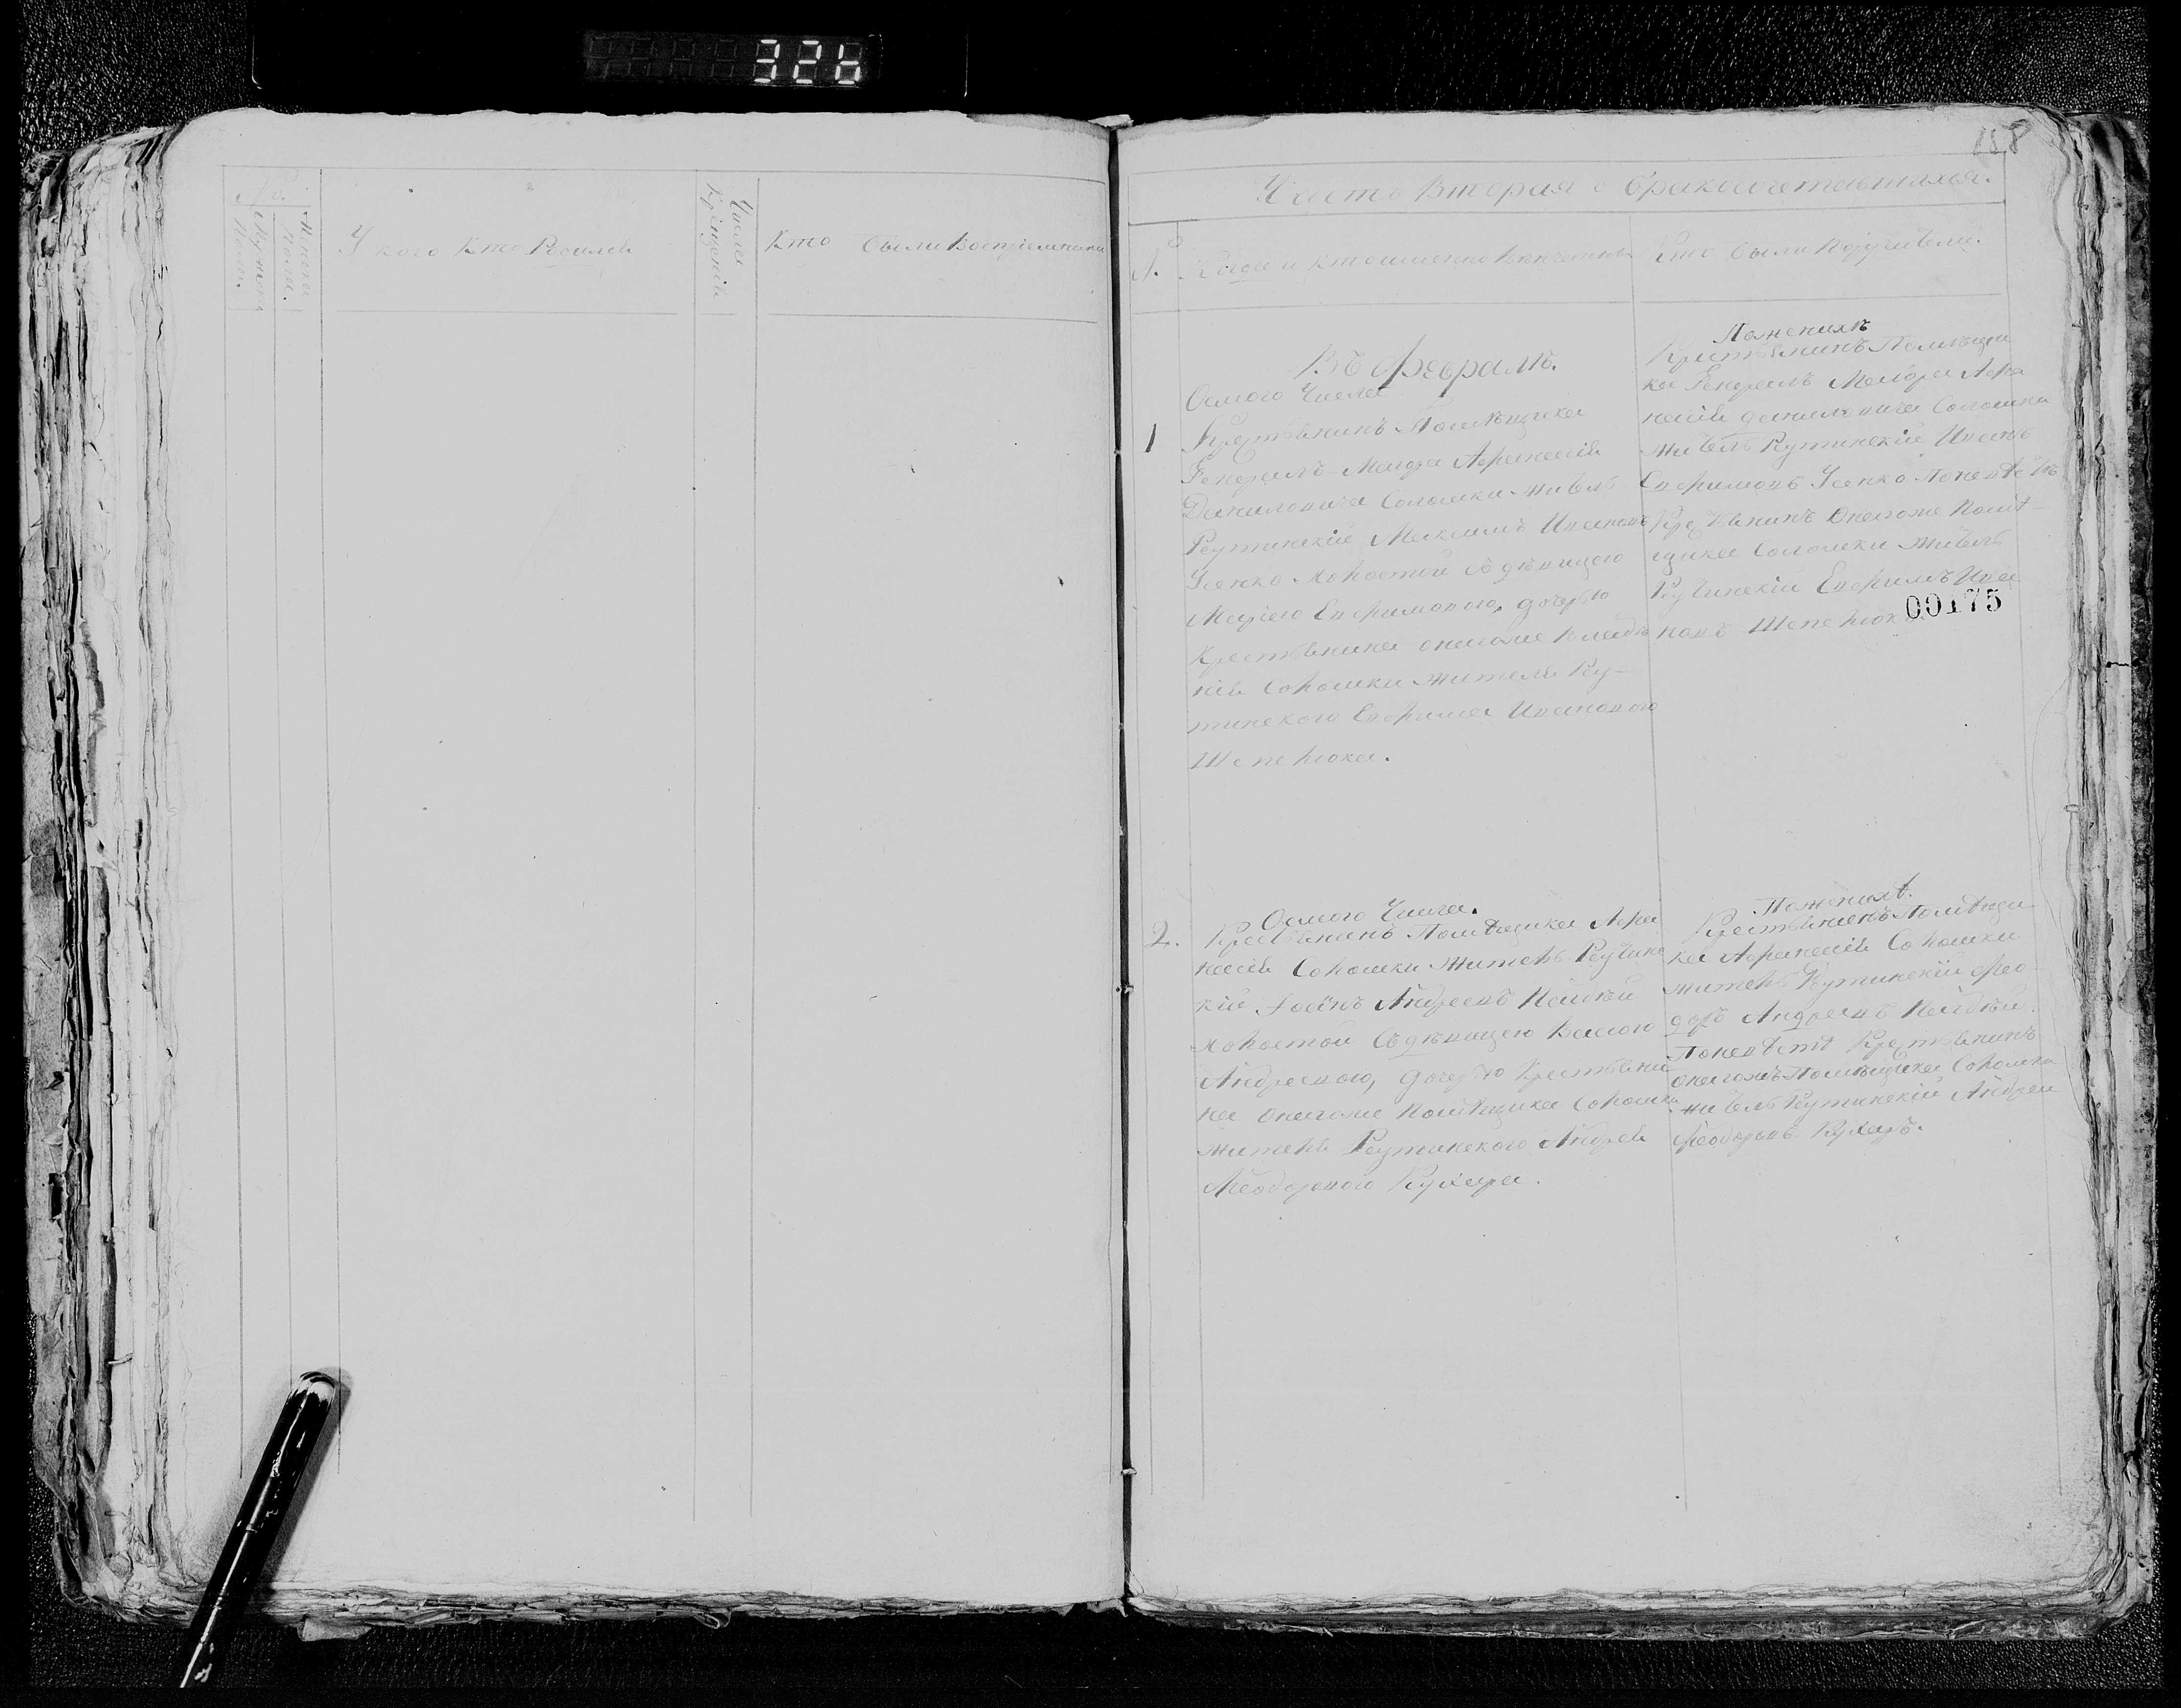 326
188
№.
Мужеска Полa.
Женска Пола.
У кого кто Родился
Число Крещенія
Кто были Воспріемники
Часть Вторая о бракосочетавшихся.
№.
Когда и кто именно Венчаны
Кто были Поручители.
Въ февралѣ.
Осмого Числа
1
Крестьянинъ Помѣщика
Генералъ Маіора Афанасія
Даниловича Соломки житель
Рутинскій Максимъ Ивановъ
Усенко Холостой съ дѣвицею
Маріею Евфимовою, дочерью
Крестьянина онагоже
нія Соломки жителя Ру-
тинского Евфима Иванового
Шепелюка.
По женихѣ
Крестьянинъ Помѣщи
ка Генералъ Маіора Афа
насія Даниловича Соломки
житель Рутинскій Иванъ
Евфимовъ Усенко По невѣстѣ
Крестьянинъ Онагоже Помѣ-
щика Соломки житель
Рутинскій Евфимъ Ива
новъ Шепелюкъ
00175
Осмого Числа.
2.
Крестьянинъ Помѣщика Афа
насія Соломки житель Рутинс
кій Андреевъ
Холостой Съ дѣвицею Васою
Андреевою, дочерью Крестьяни
на Онагоже Помѣщика Соломки
жителя Рутинского Андрея
Феодорового Кухара.
По женихѣ.
Крестьянинъ Помѣщи
ка Афанасія Соломки
житель Рутинскій Фео
доръ Андреевъ
По невѣстѣ Крестьянинъ
Онагожъ Помѣщика Соломки
житель Рутинскій Андрей
Феодоровъ Кухаръ.